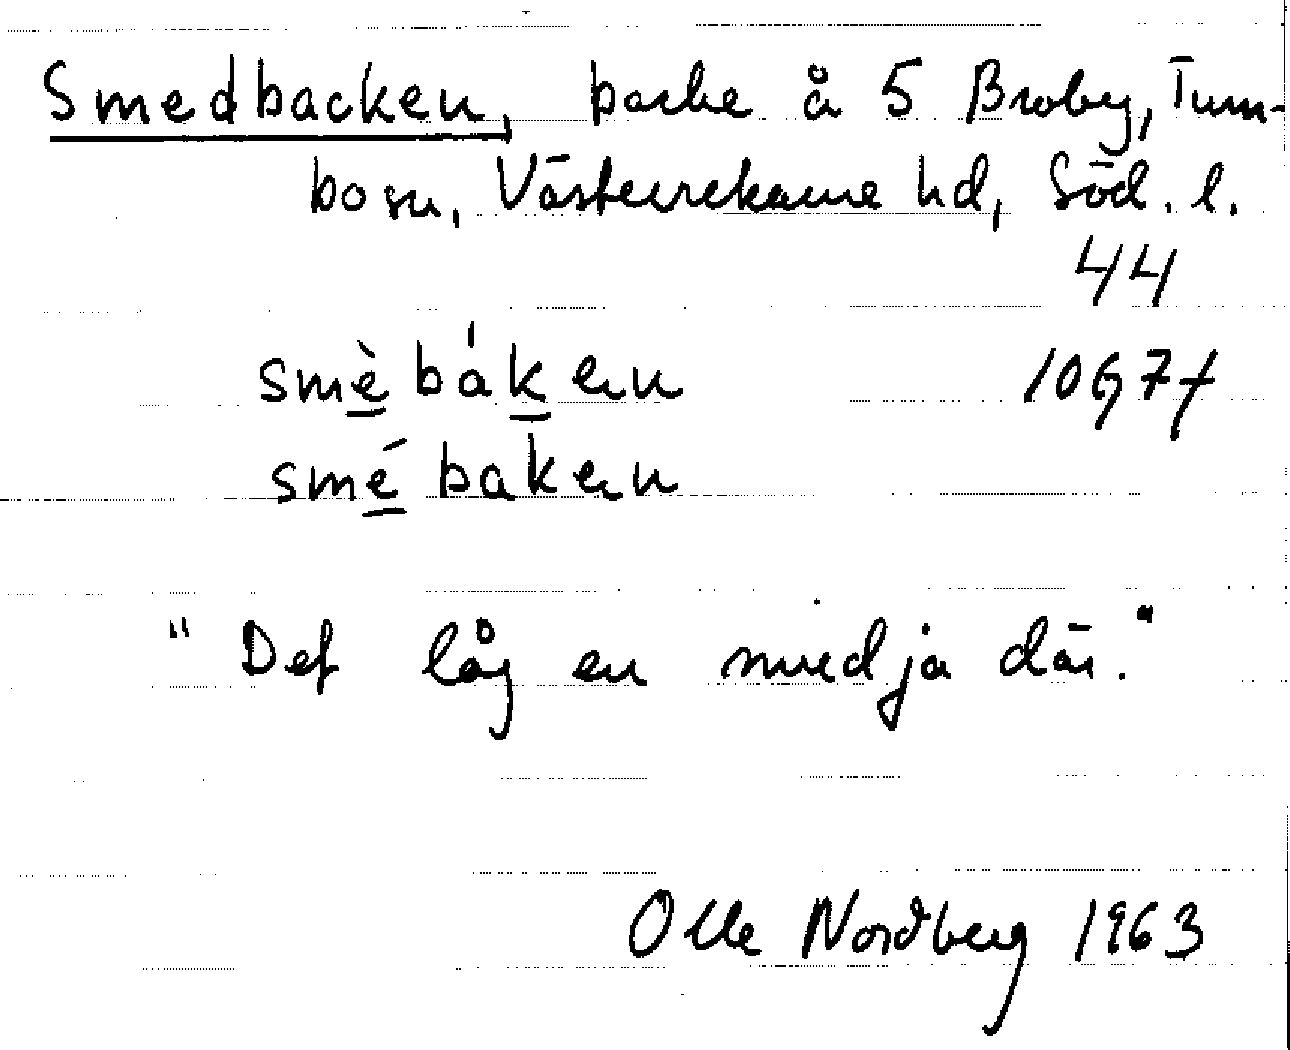 Smedbacken, backe å 5 Broby, Tum-
bo sn, Västerrekarne hd, Söd. l.
44
smè̱ báḵen
10G7f
smé̱ baken
"Det låg en smedja där."
Olle Nordberg 1963